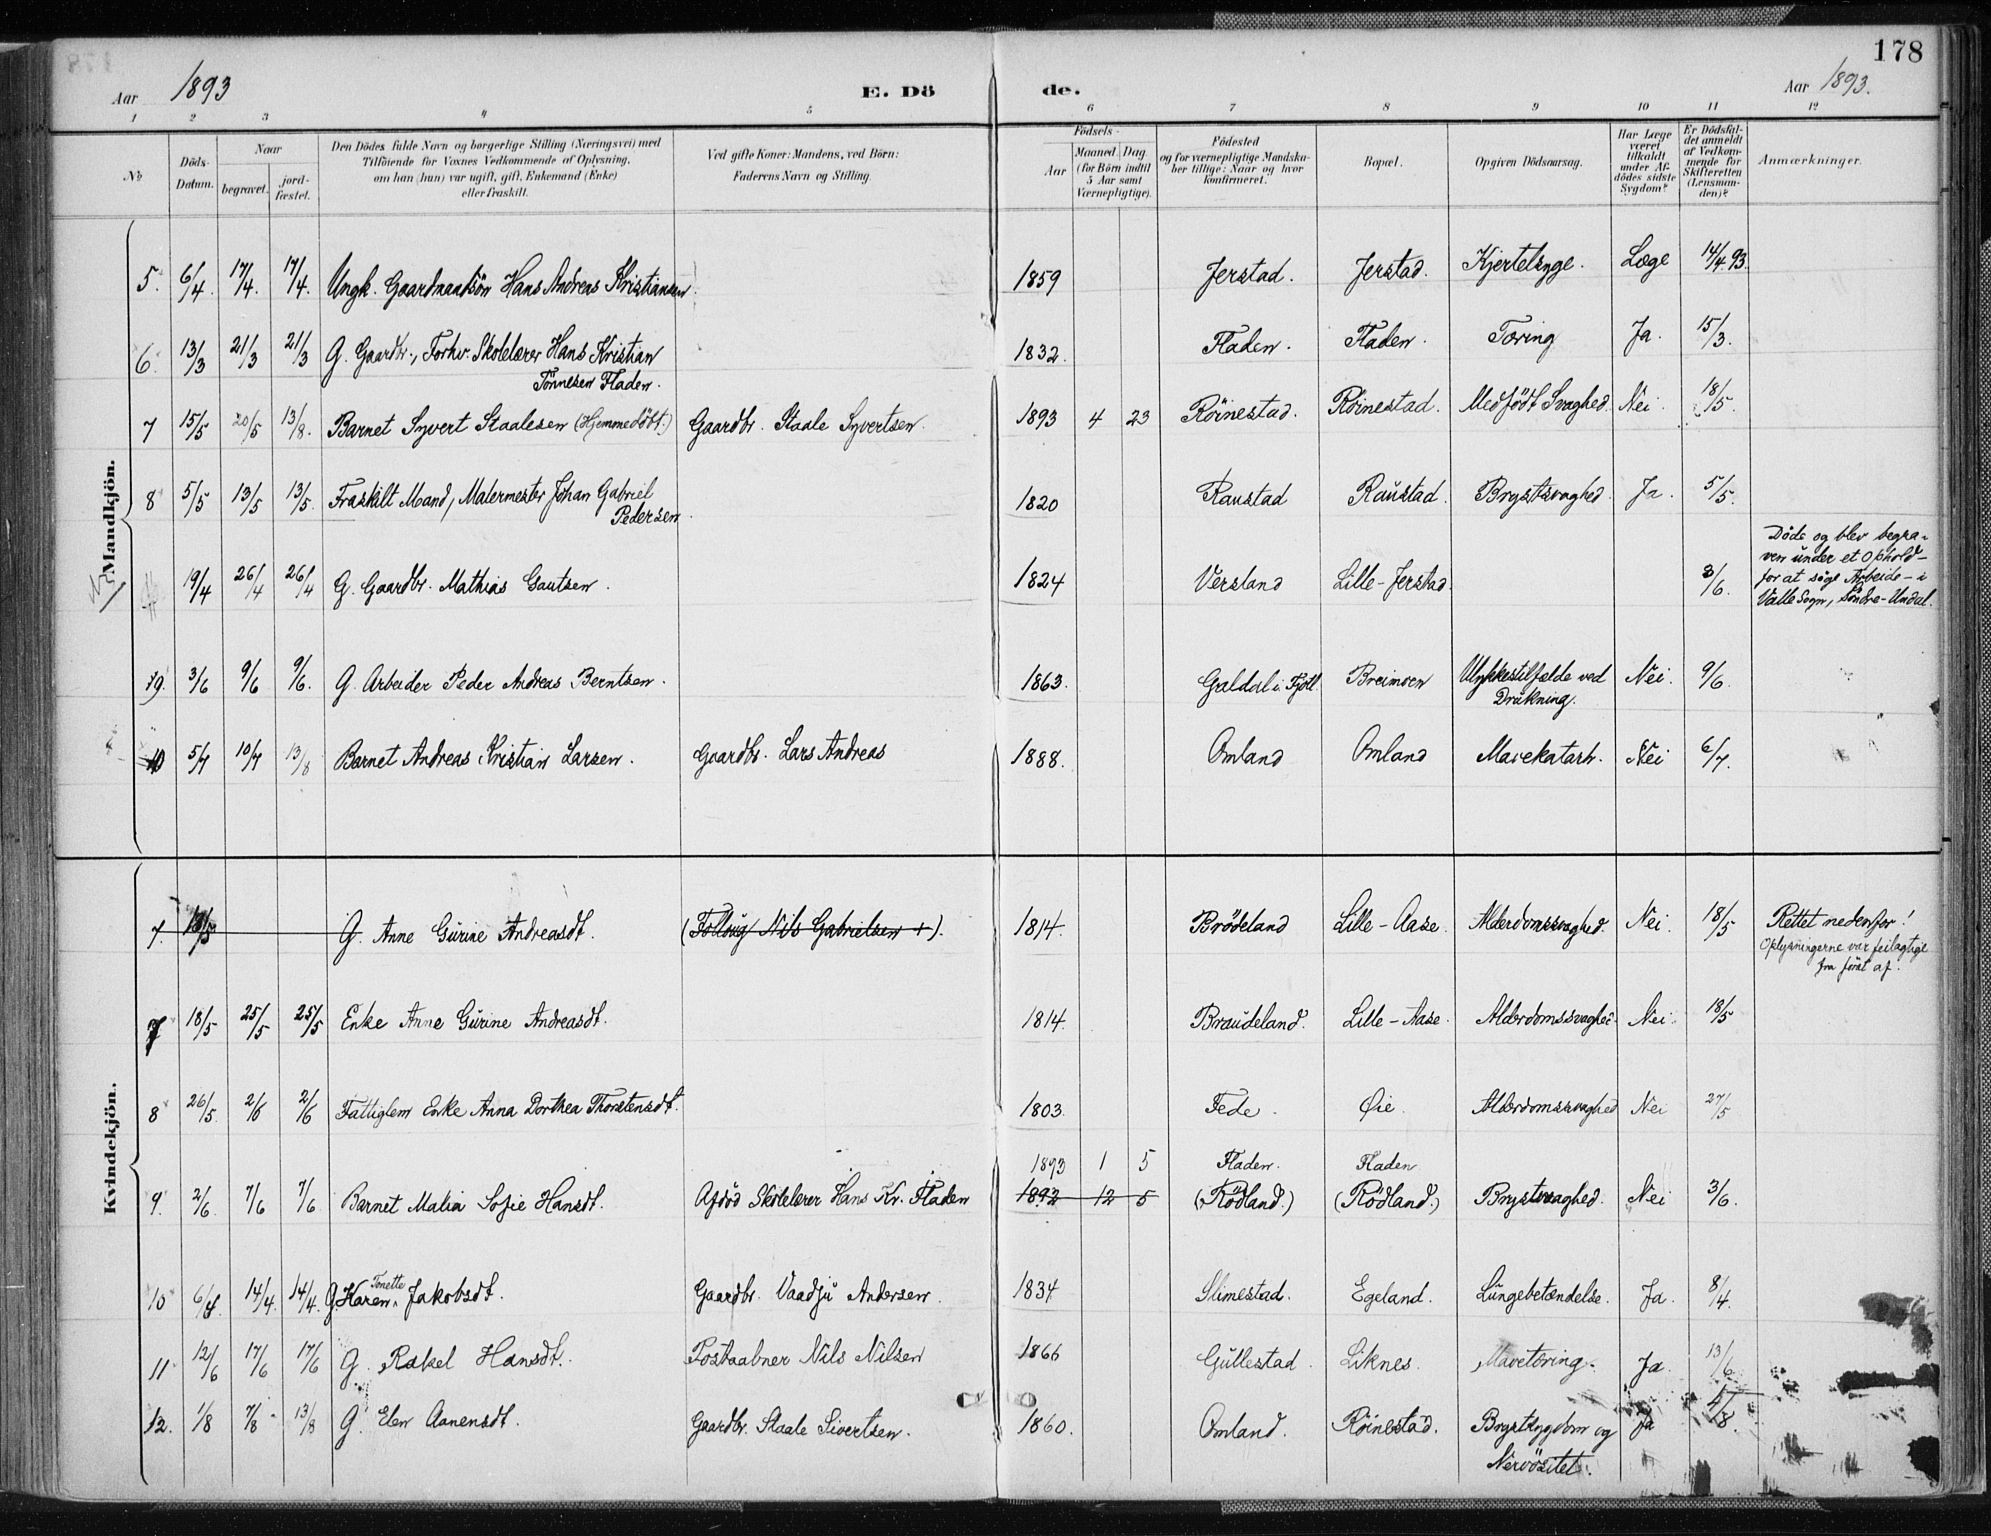 178
Aar 1893 E. Dö de. Aar 1893.
1 2 3 4 5 6 7 8 9 10 11 12
No
Döds-Datum.
Naar
begravet.
jord-fæstet.
Den Dödes fulde Navn og borgerlige Stilling (Næringsvei) med
Tilföiende for Voxnes Vedkommende af Oplysning,
om han (hun) var ugift, gift, Enkemand (Enke)
eller fraskilt.
Ved gifte Koner: Mandens, ved Börn:
Faderens Navn og Stilling.
Födsels-
Aar
Maaned. Dag
(for Börn indtil
5 Aar samt
Værnepligtige).
Födested
og for værnepligtige Mandska-
ber tillige: Naar og hvor
konfirmeret.
Bopæl.
Opgiven Dödsaarsag.
Har Læge
været
tilkaldt
under Af-
dödes sidste
Sygdom?
Er Dödsfal-
det anmeldt
af Vedkom-
mende for
Skifteretten
(Lensman-
den)?
Anmærkninger.
Mandkjön.
5. 6/4 17/4. 17/4. Ungk. Gaardmandsön Hans Andreas Kristiansen. 1859 Jerstad. Jerstad. Kjertelsyge. Læge 14/4 93.
6. 13/3 21/3 21/3 G. Gaardbr., Forhv. Skolelærer Hans Kristian 1832. Fladen. Fladen. Tæring Ja. 15/3.
Tönnesen Fladen.
7 15/5 20/5 13/8. Barnet Syvert Staalesen (Hjemmedöbt.) Gaardbr. Staale Syvertsen. 1893 4 23 Röinestad. Röinestad. Medfödt Svaghed. Nei. 18/5.
8 5/5 13/5 13/5. Fraskilt Mand, Malermester Johan Gabriel 1820 Raustad Raustad. Brystsvaghed. Ja. 5/5.
Pedersen.
19/4 26/4 26/4 G. Gaardbr. Mathias Gautsen. 1824 Versland Lille-Jerstad. 3/6. Döde og blev begra-
ven under et Ophold -
for at söge Arbeide - i
Valle Sogn, Söndre-Undal.
9. 3/6 9/6 9/6. G. Arbeider Peder Andreas Berntsen. 1863. Galdal i Fjotl. Breimoen Ulykkestilfælde ved Nei. 9/6.
Drukning.
10 5/7 10/7 13/8 Barnet Andreas Kristian Larsen. Gaardbr. Lars Andreas 1888. Omland Omland Mavekatarh. Nei 6/7.
Kvindekjön.
7. 18/5 G. Anne Gurine Andreasdt. (Nils Gabrielsen +). 1814. Brödeland Lille-Aase. Alderdomssvaghed. Nei. 18/5 Rettet nedenfor!
Oplysningerne var feilagtige
fra först af.
7 18/5 25/5 25/5 Enke Anne Gurine Andreasdt. 1814. Braudeland. Lille-Aase. Alderdomssvaghed. Nei. 18/5
8 26/5. 2/6 2/6 Fattiglem Enke Anna Dorthea Thorstensdt. 1803. Fede. Øie. Alderdomssvaghed Nei 27/5
1893 1 5 Fladen. Fladen
9. 2/6. 7/6 7/6 Barnet Malia Sofie Hansdt. Afdöd Skolelærer Hans Kr. Fladen 1892 12 5 (Rödland.) (Rödland.) Brystsvaghed. Nei 3/6.
10 6/4. 14/4. 14/4. G. Karen Tonette Jakobsdt. Gaardbr. Vaadju Andersen. 1834 Slimestad. Egeland. Lungebetændelse. Ja. 8/4.
11 12/6 17/6 17/6 G. Rakel Hansdt. Postaabner Nils Nilsen 1866 Gullestad. Liknes. Mavetæring. Ja. 13/6.
12. 1/8 7/8 13/8 G. Elen Aanensdt. Gaardbr. Staale Sivertsen. 1860. Omland. Röinestad. Brystsygdom og Ja 4/8.
Nervösitet.